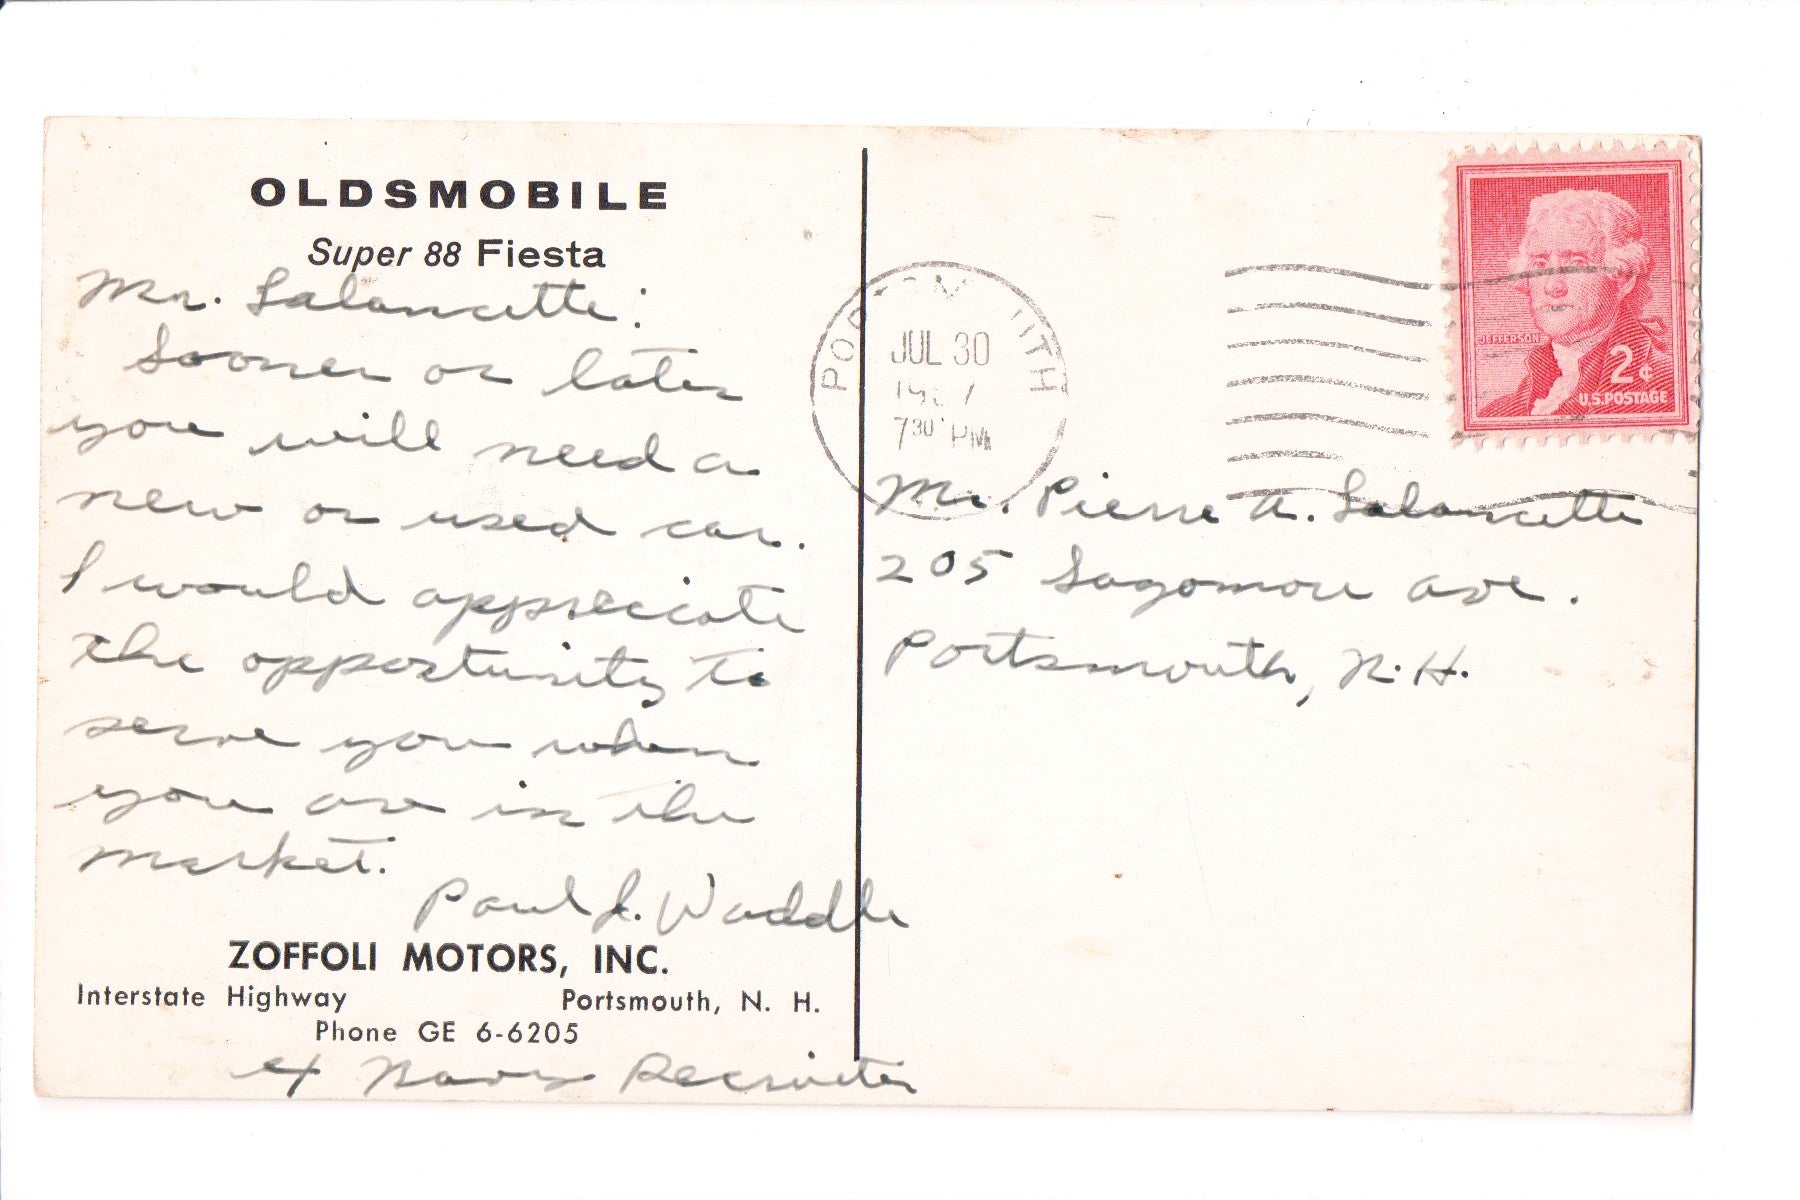 OLDSMOBILE
Super 88 Fiesta
Mr. Lalancette:
Sooner or later
you will need a
new or used car.
I would appreciate
the opportunity to
serve you when
you are in the
market.
Paul J. Waddle
ZOFFOLI MOTORS, INC.
Interstate Highway Portsmouth, N. H.
Phone GE 6-6205
ex Navy Recruiter
JUL 30
7 30 PM
JEFFERSON
2¢
U.S. POSTAGE
Mr. Pierre A. Lalancette
205 Sagamore Ave.
Portsmouth, N.H.